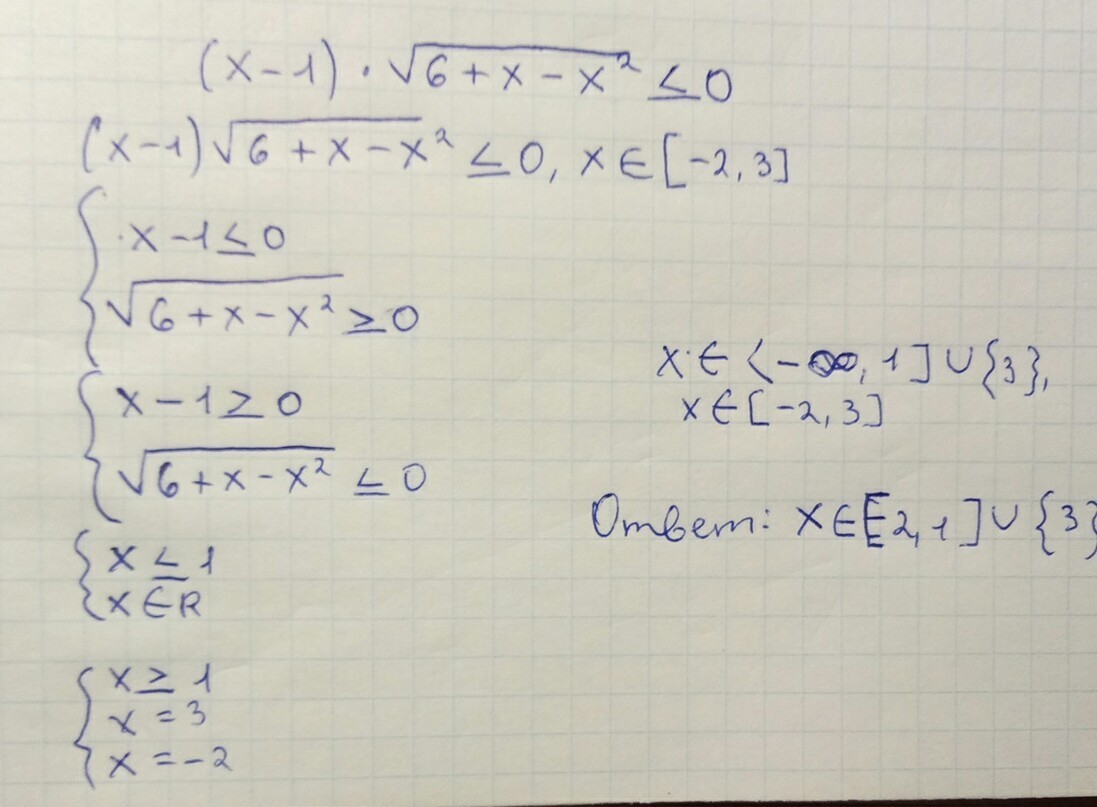 (x-1)·√6+x-x² ≤0
(x-1)√6+x-x² ≤0, x∈[-2,3]
x-1≤0
√6+x-x² ≥0
x-1≥0
√6+x-x² ≤0
x≤1
x∈R
x≥1
x=3
x=-2
x∈⟨-∞,1]∪{3},
x∈[-2,3]
Ответ: x∈[-2,1]∪{3}